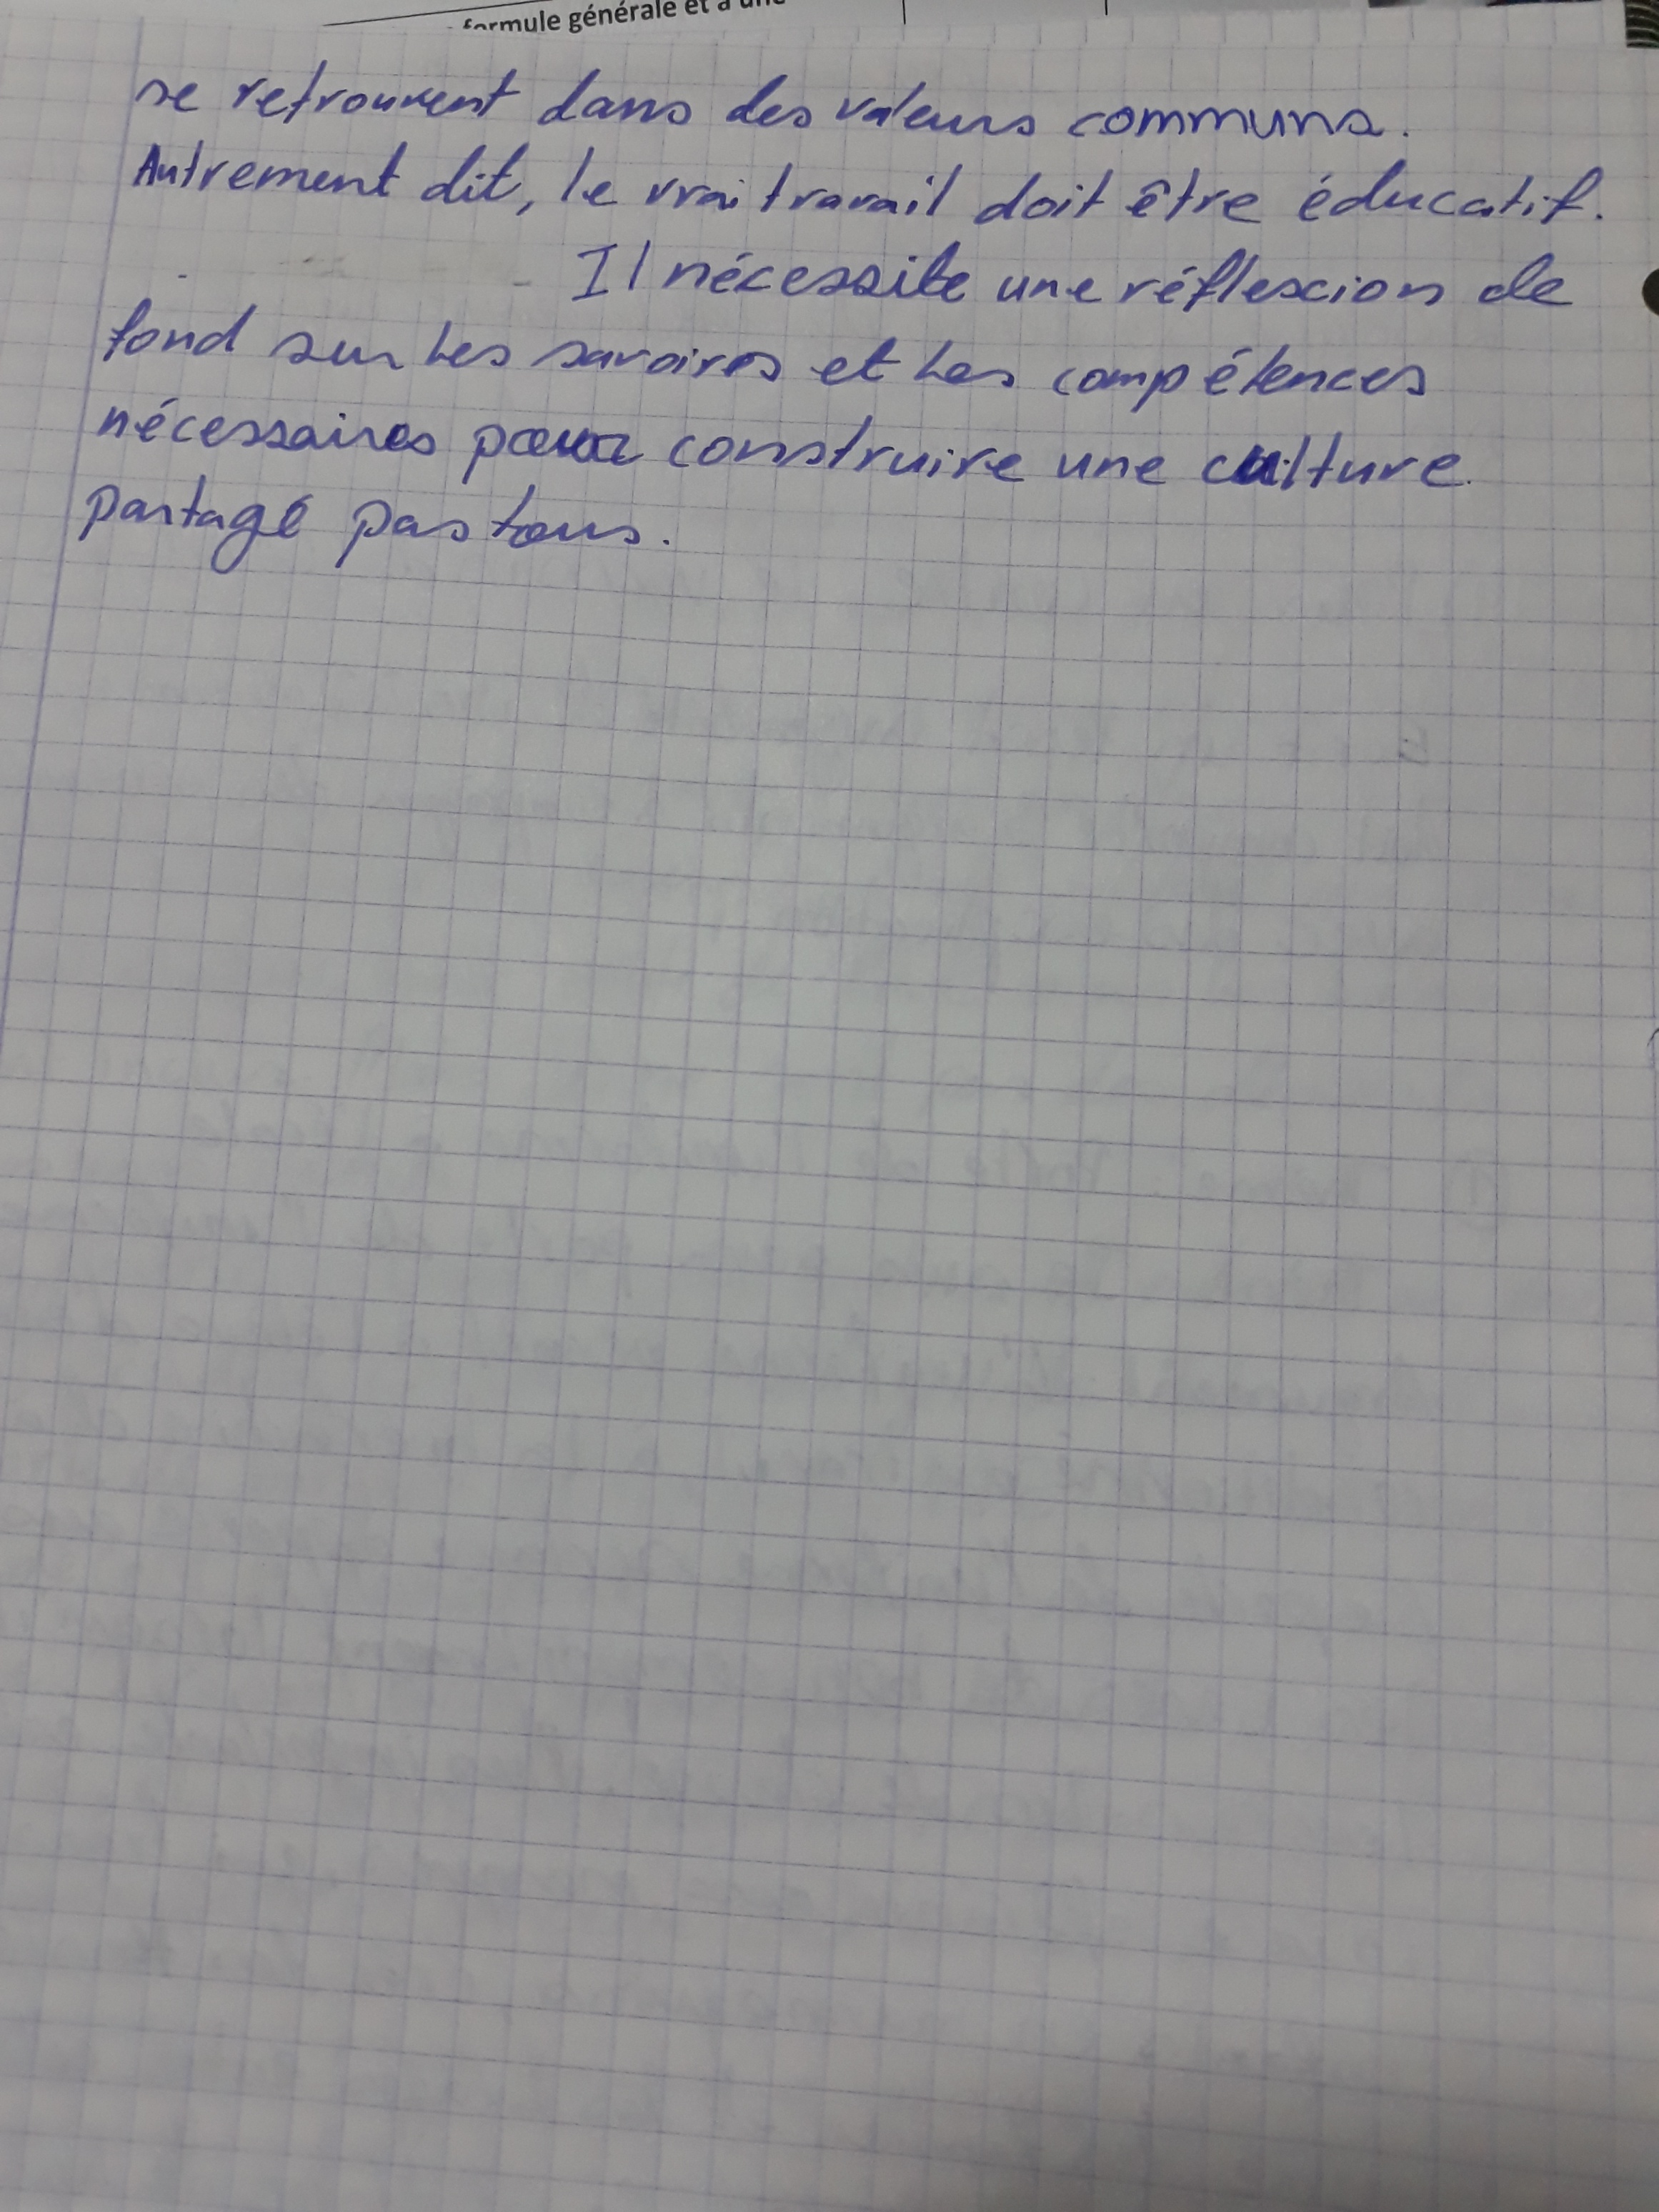 formule générale et à une
se retrouvent dans des valeurs communs.
Autrement dit, le vrai travail doit être éducatif.
Il nécessite une réflexion de
fond sur les savoires et les compétences
nécessaires pour construire une culture
partagé pas tous.